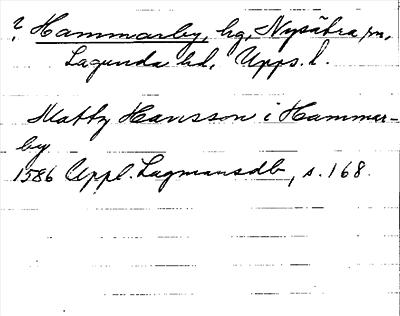 ? Hammarby, hg, Nysätra sn,
Lagunda hd, Upps. l.
Matty Hansson i Hammar-
by
1586 Uppl. Lagmansdb, s. 168.